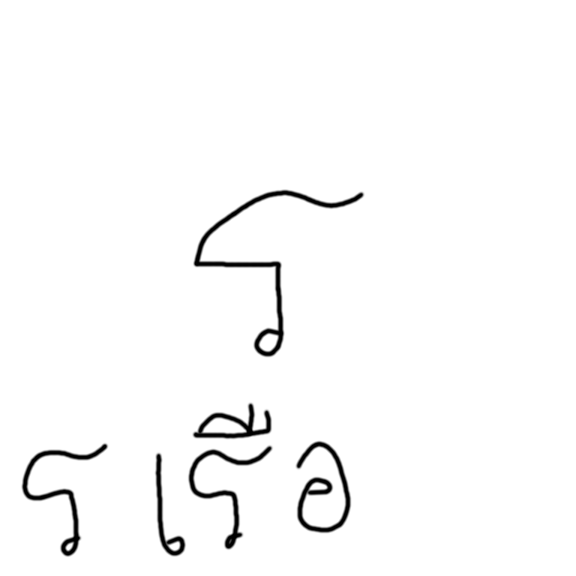 ร
ร เรือ